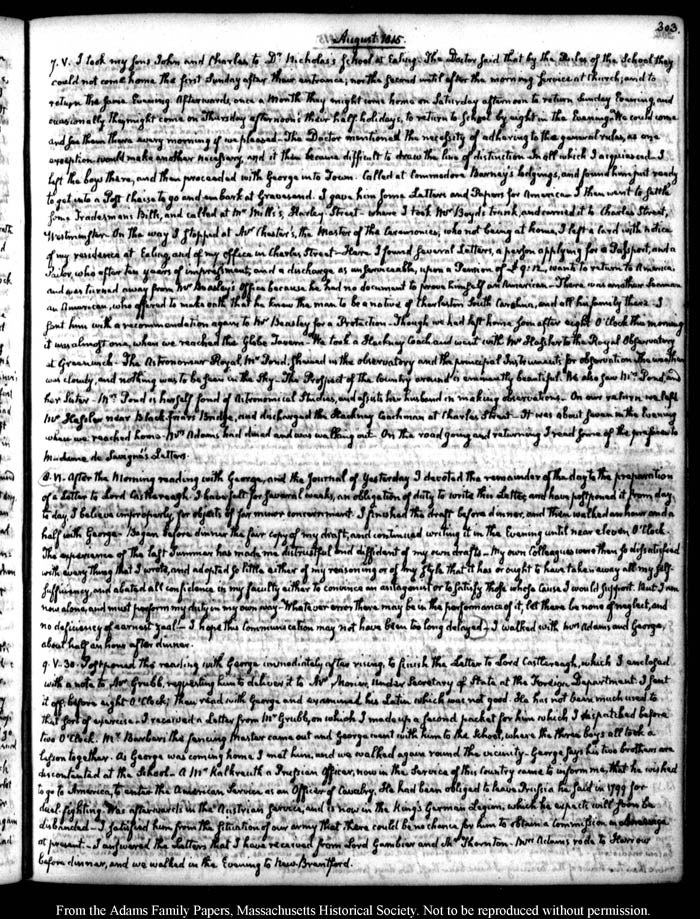 303.
August 1815
7. V. I took my Sons John and Charles to Dr. Nicholas's School at Ealing. The Doctor said that by the Rules of the School they
could not come home the first Sunday after their entrance; nor the second until after the morning Service at Church; and to
return the same Evening. Afterwards, once a Month they might come home on Saturday afternoon to return Sunday Evening, and
occasionally they might come on Thursday afternoon; their half holidays, to return to School by eight in the Evening. We could come
and see them there every morning if we pleased. The Doctor mentioned the necessity of adhering to the general rules, as one
exception would make another necessary, and it then became difficult to draw the line of distinction. In all which I acquiesced. I
left the boys there, and then proceeded with George into Town. Called at Commodore Barney's lodgings, and found him just ready
to get into a Post Chaise to go and embark at Gravesend. I gave him some Letters and Papers for America. I then went to settle
some Tradesmans Bills, and called at Mr Mills's, Harley-Street—where I took Mr Boyd's trunk, and carried it to Charles Street,
Westminster. On the way I stopped at Mr Chester's, the Master of the Ceremonies, who not being at home, I left a Card with notice
of my residence at Ealing, and of my office in Charles Street—Here I found several Letters, a person applying for a Passport, and a
Sailor, who after ten years of impressment, and a discharge as unserviceable, upon a Pension of £9:12., wants to return to America;
and was turned away from Mr Beasley's Office because he had no document to prove himself an American—There was another Seaman
an American, who offered to make oath that he knew the man to be a native of Charleston South Carolina, and all his family there—I
sent him with a recommendation again to Mr Beasley for a Protection—Though we had left home soon after eight O'Clock this morning
it was almost one, when we reached the Globe Tavern—We took a Hackney Coach and went with Mr Hassler to the Royal Observatory
at Greenwich—The Astronomer Royal Mr Pond, shewed us the observatory and the principal Instruments for observation. The weather
was cloudy, and nothing was to be seen in the Sky—The Prospect of the Country around is eminently beautiful. We also saw Mrs Pond and
her Sister—Mrs Pond is herself fond of Astronomical Studies, and assists her husband in making observations. On our return we left
Mr Hassler near Black-friars Bridge, and discharged the Hackney Coachman at Charles Street—It was about seven in the Evening
when we reached home. Mrs Adams had dined and was walking out. On the road going and returning I read some of the prefaces to
Madame de Savigné's Letters.
8. After the Morning reading with George, and the Journal of Yesterday I devoted the remainder of the day to the preparation
of a Letter to Lord Castlereagh. I have felt for several weeks, an obligation of duty to write this Letter, and have postponed it from day
to day I believe improperly, for objects of far minor concernment. I finished the draft before dinner, and then walked an hour and a
half with George—Began before dinner the fair copy of my draft, and continued writing it in the Evening until near eleven O'Clock.
The experience of the last Summer has made me distrustful and diffident of my own drafts—My own Colleagues were then so dissatisfied
with every thing that I wrote, and adopted so little either of my reasoning or of my style that it has or ought to have taken away all my self-
sufficiency, and abated all confidence in my faculty either to convince an antagonist or to satisfy those whose cause I would support. But I am
now alone, and must perform my duty in my own way—Whatever error there may be in the performance of it, let there be none of neglect, and
no deficiency of earnest zeal!—I hope this communication may not have been too long delayed—I walked with Mrs Adams and George,
about half an hour after dinner.
9. V.30. I postponed the reading with George immediately after rising, to finish the Letter to Lord Castlereagh, which I enclosed
with a note to Mr Grubb, requesting him to deliver it to Mr Morier, Under Secretary of State at the Foreign Department. I sent
it off before eight O'Clock; then read with George and examined his Latin which was not good. He has not been much used to
that sort of exercise—I received a Letter from Mr Grubb, on which I made up a second packet for him which I despatched before
two O'Clock. Mr Barbers the fencing master came out and George went with him to the School, where the three boys all took a
lesson together. As George was coming home I met him, and we walked again round the vicinity—George says his two brothers are
discontented at the School—A Mr Kalkreuth a Prussian Officer, now in the Service of this country came to inform me, that he wished
to go to America, to enter the American Service as an Officer of Cavalry. He had been obliged to leave Prussia he said in 1799 for
duel fighting. Was afterwards in the Austrian Service, and is now in the King's German Legion, which he expects will soon be
disbanded—I satisfied him from the situation of our army that there could be no chance for him to obtain a Commission
at present—I answered the Letters that I have received from Lord Gambier and Mr Thornton. Mrs Adams rode to Harrow
before dinner, and we walked in the Evening to New-Brentford.
From the Adams Family Papers, Massachusetts Historical Society. Not to be reproduced without permission.